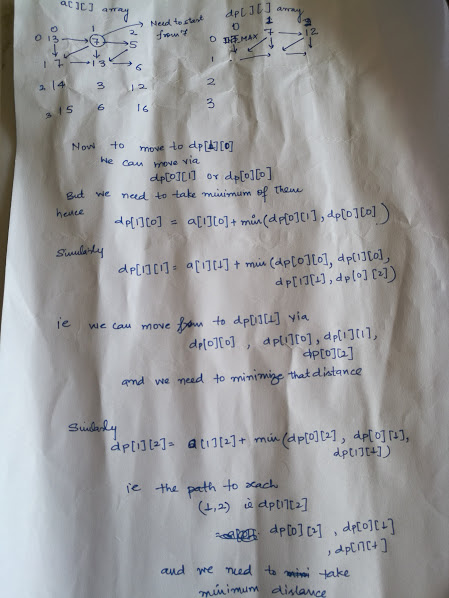 a[][] array
dp[][] array
0 1 2
Need to start
from 7
0 13 7 5
1 7 13 6
2 14 3 12
3 15 6 16
0 1 2
0 INT_MAX 7 12
1
2
3
Now to move to dp[1][0]
We can move via
dp[0][1] or dp[0][0]
But we need to take minimum of them
hence
dp[1][0] = a[1][0]+min(dp[0][1],dp[0][0])
Similarly
dp[1][1]= a[1][1]+min(dp[0][0], dp[1][0],
dp[1][1], dp[0][2])
ie we can move to dp[1][1] via
dp[0][0], dp[1][0], dp[1][1],
dp[0][2]
and we need to minimize that distance
Similarly
dp[1][2]= a[1][2]+min(dp[0][2], dp[0][1],
dp[1][1])
ie the path to reach
(1,2) is dp[1][2]
dp[0][2], dp[0][1]
, dp[1][1]
and we need to take
minimum distance